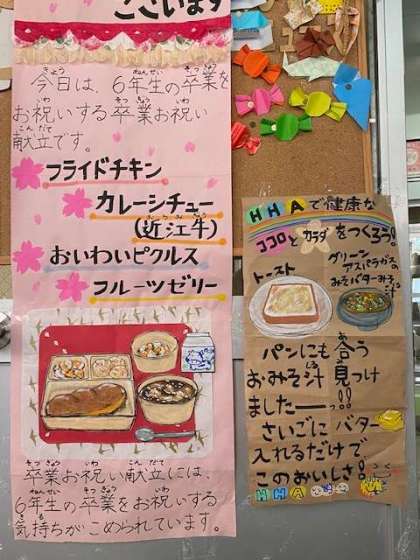 ございます
今日は、6年生の卒業を
お祝いする卒業お祝い
献立です。
フライドチキン
カレーシチュー
(近江牛)
おいわいピクルス
フルーツゼリー
卒業お祝い献立には、
6年生の卒業をお祝いする
気持ちがこめられています。
HHAで健康な
ココロとカラダをつくろう!
トースト
グリーン
アスパラガスの
みそバターみそ汁
パンにも合う
おみそ汁見つけ
ましたー!!
さいごにバター
入れるだけで
このおいしさ!
HHA